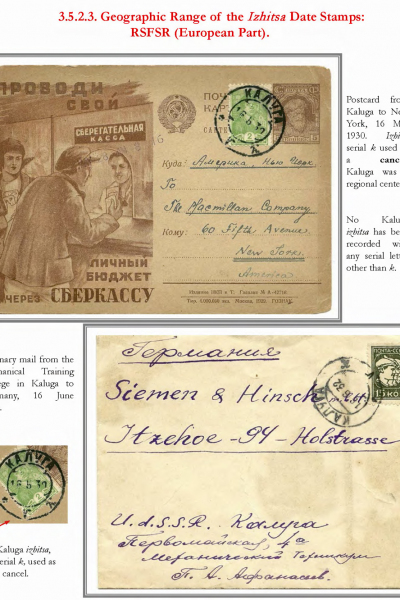 3.5.2.3. Geographic Range of the Izhitsa Date Stamps:
RSFSR (European Part).
ПРОВОДИ
СВОЙ
СБЕРЕГАТЕЛЬНАЯ
КАССА
ЛИЧНЫЙ
БЮДЖЕТ
ЧЕРЕЗ СБЕРКАССУ
КАЛУГА
Куда: Америка, Нью Йорк.
To
The Macmillan Company
Кому: 60 Fifth Avenue,
New York.
America
Postcard fro
Kaluga to Ne
York, 16 M
1930. Izhi
serial k used
a canc
Kaluga was
regional cente
No Kalu
izhitsa has be
recorded wi
any serial lett
other than k.
nary mail from the
hanical Training
ege in Kaluga to
many, 16 June
КАЛУГА
16 5 30
Kaluga izhitsa,
serial k, used as
cancel.
Германия
Siemen & Hinsch
Itzehoe -94- Holstrasse
КАЛУГА
ПОЧТА СССР
15 КОП
U.d.S.S.R. Калуга
Первомайская,
Механический Техникум
П. А. Афанасьев.